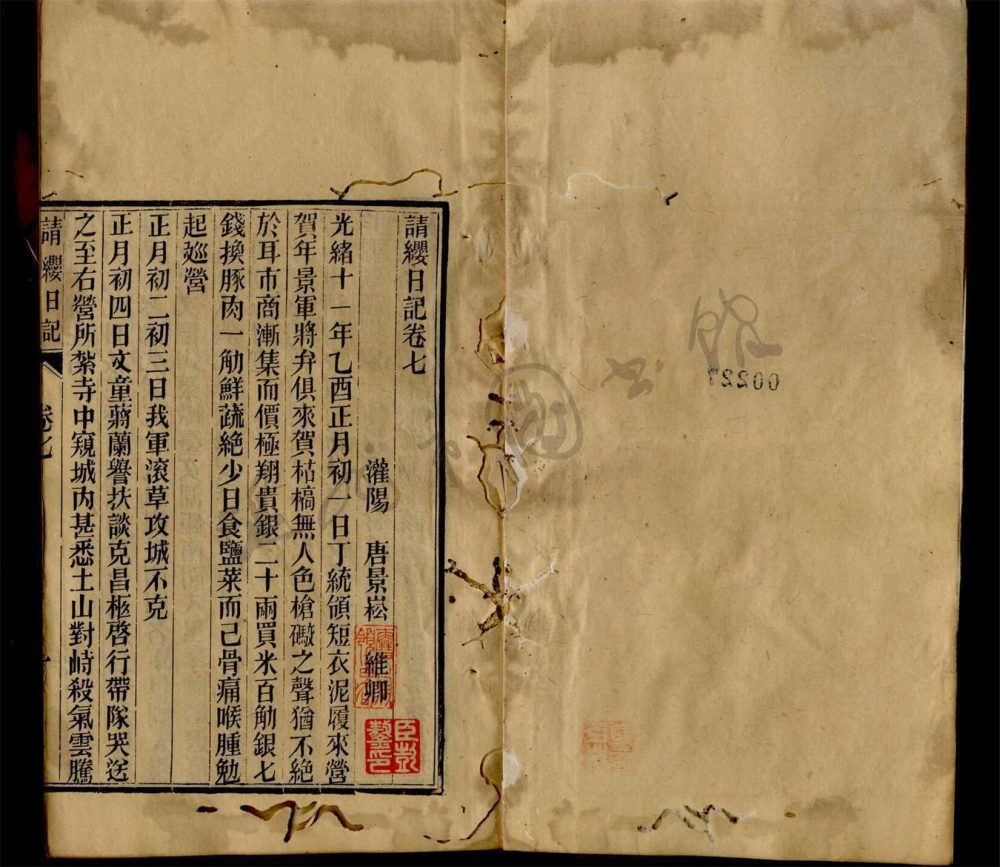 請纓日記卷七
灌陽 唐景崧 維卿
光緒十一年乙酉正月初一日丁統領短衣泥履來營
賀年景軍將弁俱來賀枯槁無人色槍礮之聲猶不絕
於耳市商漸集而價極翔貴銀二十兩買米百觔銀七
錢換豚肉一觔鮮蔬絕少日食鹽菜而已骨痛喉腫勉
起廵營
正月初二初三日我軍滾草攻城不克
正月初四日文童蔣蘭譽扶談克昌柩啓行帶隊哭送
之至右營所紮寺中窺城內甚悉土山對峙殺氣雲騰
請纓日記
卷七
00227